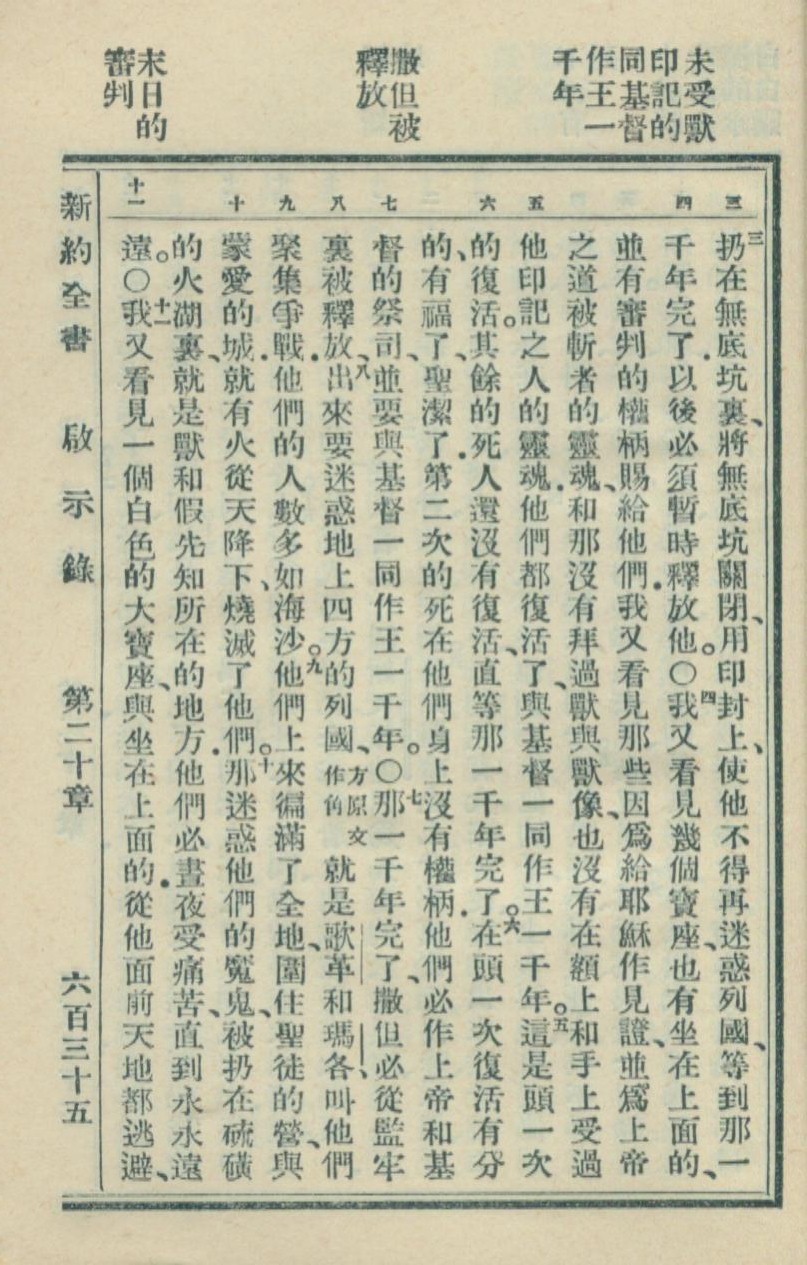 未受獸
印記的
同基督
作王一
千年
撒但被
釋放
末日的
審判
三
四
五
六
七
八
九
十
十一
三扔在無底坑裏、將無底坑關閉、用印封上、使他不得再迷惑列國、等到那一
千年完了．以後必須暫時釋放他。〇四我又看見幾個寶座、也有坐在上面的、
並有審判的權柄賜給他們．我又看見那些因爲給耶穌作見證、並爲上帝
之道被斬者的靈魂、和那沒有拜過獸與獸像、也沒有在額上和手上受過
他印記之人的靈魂．他們都復活了、與基督一同作王一千年。五這是頭一次
的復活。其餘的死人還沒有復活、直等那一千年完了。六在頭一次復活有分
的、有福了、聖潔了．第二次的死在他們身上沒有權柄．他們必作上帝和基
督的祭司、並要與基督一同作王一千年。〇七那一千年完了、撒但必從監牢
裏被釋放、八出來要迷惑地上四方的列國、方原文作角就是歌革和瑪各、叫他們
聚集爭戰．他們的人數多如海沙。九他們上來徧滿了全地、圍住聖徒的營、與
蒙愛的城、就有火從天降下、燒滅了他們．十那迷惑他們的魔鬼、被扔在硫磺
的火湖裏、就是獸和假先知所在的地方．他們必晝夜受痛苦、直到永永遠
遠。〇十一我又看見一個白色的大寶座、與坐在上面的．從他面前天地都逃避、
新約全書　啟示錄　第二十章　六百三十五